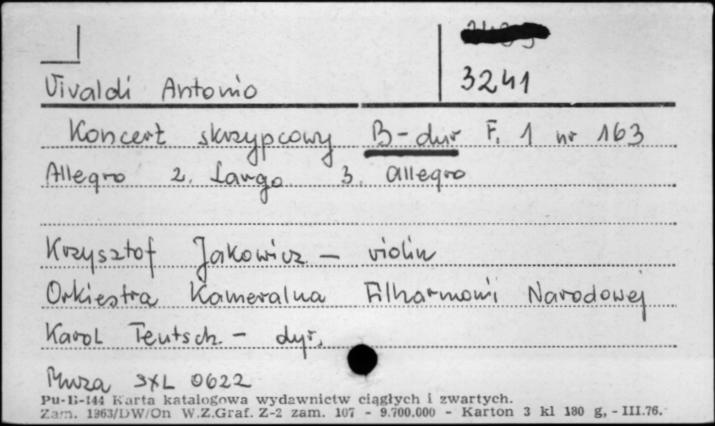 3241
Vivaldi Antonio
Koncert skrzypcowy B-dur F. 1 nr 163
Allegro 2. Largo 3. Allegro
Krzysztof Jakowicz – violin
Orkiestra Kameralna Filharmonii Narodowej
Karol Teutsch. – dyr.
Muza SXL 0622
Pu-Ii-144 Karta katalogowa wydawnictw ciągłych i zwartych.
Zam. 1963/DW/On W.Z.Graf. Z-2 zam. 107 - 9.700.000 - Karton 3 kl 180 g, - III.76.